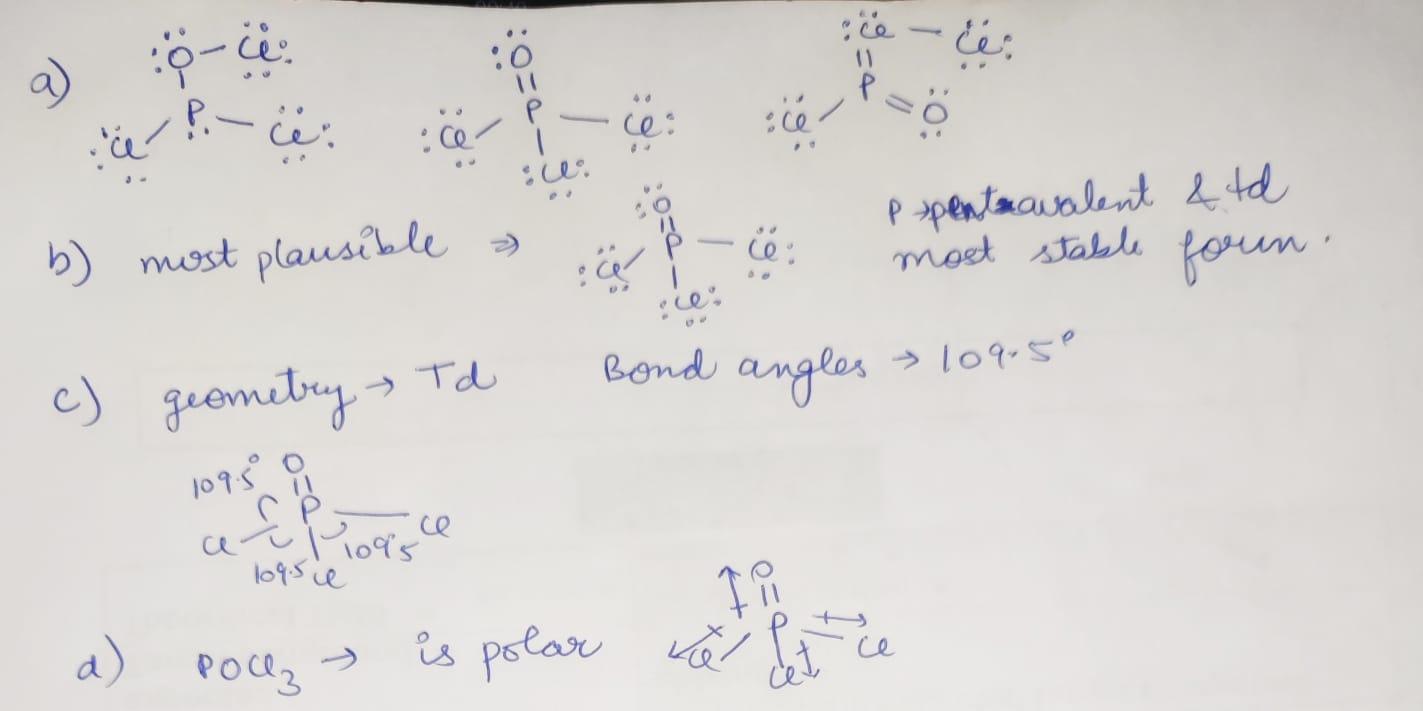 a) :Ö – C̈l: :Ö :C̈l – C̈l:
P P P
:C̈l C̈l: :C̈l C̈l: :C̈l Ö
:Cl:
b) most plausible ⇒ :Ö = P – C̈l: P → pentavalent & td
:C̈l :Cl: most stable form.
c) geometry → Td Bond angles → 109.5°
109.5° O
P
Cl Cl
109.5 Cl 109.5
d) POCl3 → is polar O
P
Cl Cl Cl